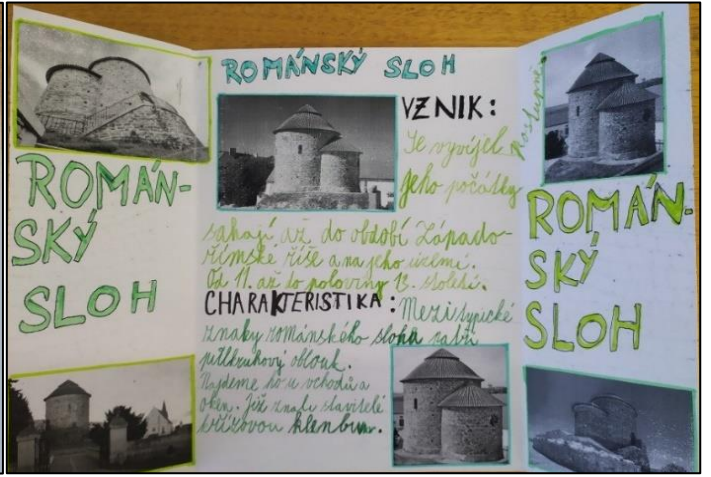 ROMÁN-
SKÝ
SLOH
ROMÁNSKÝ SLOH
VZNIK:
Se vyvíjel postupně
jeho počátky
sahají až do období Západo-
římské říše a na jeho území.
Od 11. až do poloviny 13. století.
CHARAKTERISTIKA: Mezi typické
znaky románského slohu patří
půlkruhový oblouk.
Najdeme ho u vchodů a
oken. Již znali stavitelé
křížovou klenbu.
ROMÁN-
SKÝ
SLOH